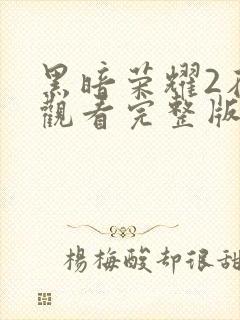 黑暗荣耀2
觀看完整版
楊梅酸却很甜